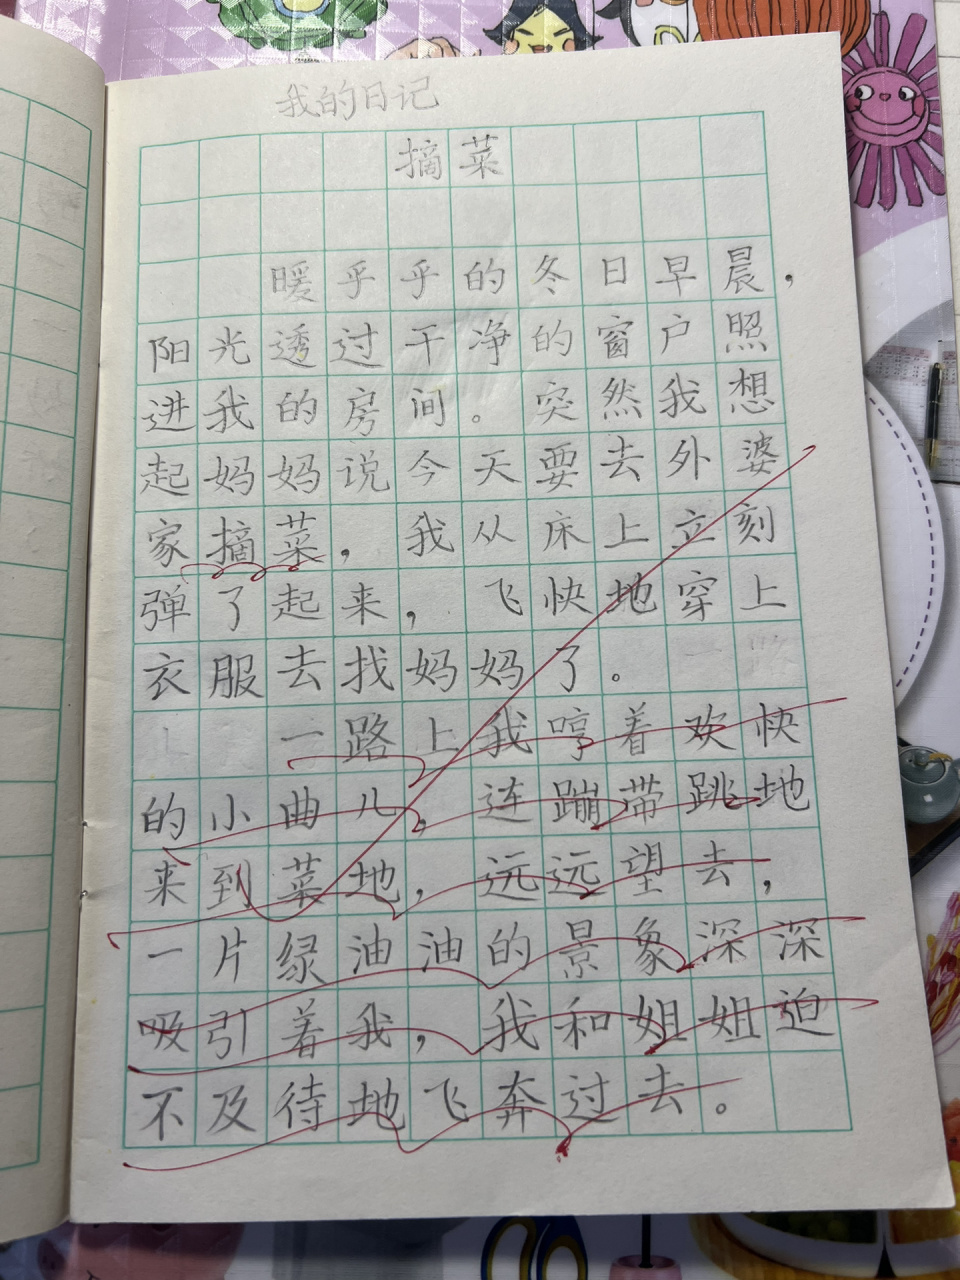 我的日记
摘菜
暖乎乎的冬日早晨，
阳光透过干净的窗户照
进我的房间。突然我想
起妈妈说今天要去外婆
家摘菜，我从床上立刻
弹了起来，飞快地穿上
衣服去找妈妈了。
一路上我哼着欢快
的小曲儿，连蹦带跳地
来到菜地，远远望去，
一片绿油油的景象深深
吸引着我，我和姐姐迫
不及待地飞奔过去。